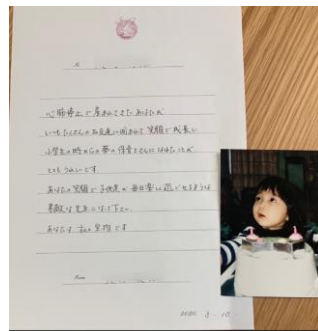 心肺停止で産まれてきたあなたが
いつもたくさんのお友達に囲まれて笑顔で成長し
小学生の時からの夢の保育士さんになれたことが
とてもうれしいです
あなたの笑顔で子供達が毎日楽しく過ごせるような
素敵な先生になって下さい
あなたは私の宝物です